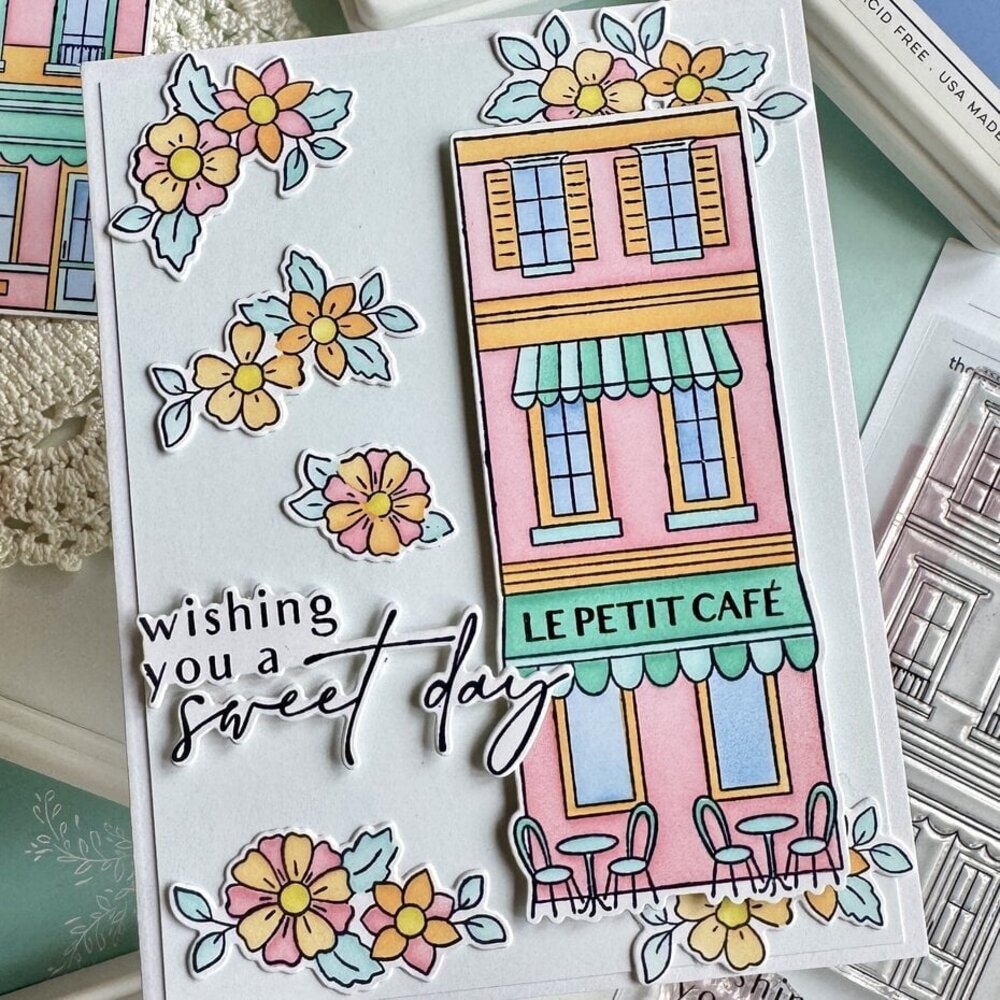 ACID FREE . USA MADE
the
LE PETIT CAFÉ
wishing
you a
sweet day